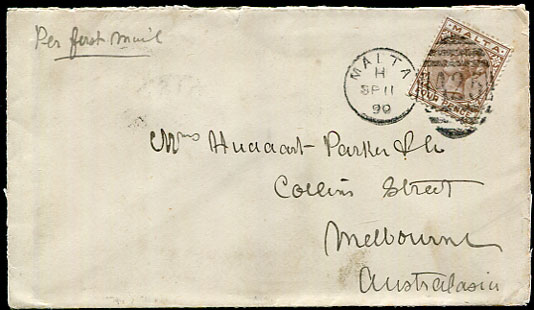 Per first mail
MALTA
H
SP 11
90
MALTA
A25
FOUR PENCE
Messrs Huddart-Parker & Co
Collins Street
Melbourne
Australasia